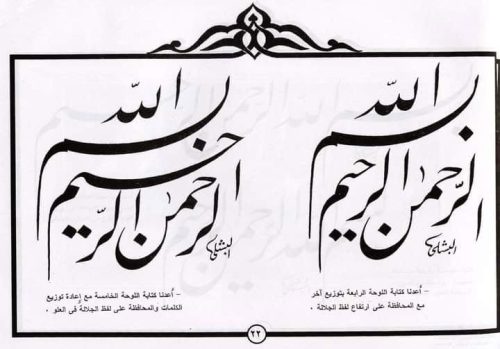 بسم الله
الرحمن الرحيم
البشلي
– أعدنا كتابة اللوحة الرابعة بتوزيع آخر
مع المحافظة على ارتفاع لفظ الجلالة .
بسم الله
الرحمن الرحيم
البشلي
– أعدنا كتابة اللوحة الخامسة مع إعادة توزيع
الكلمات والمحافظة على لفظ الجلالة فى العلو .
٢٢